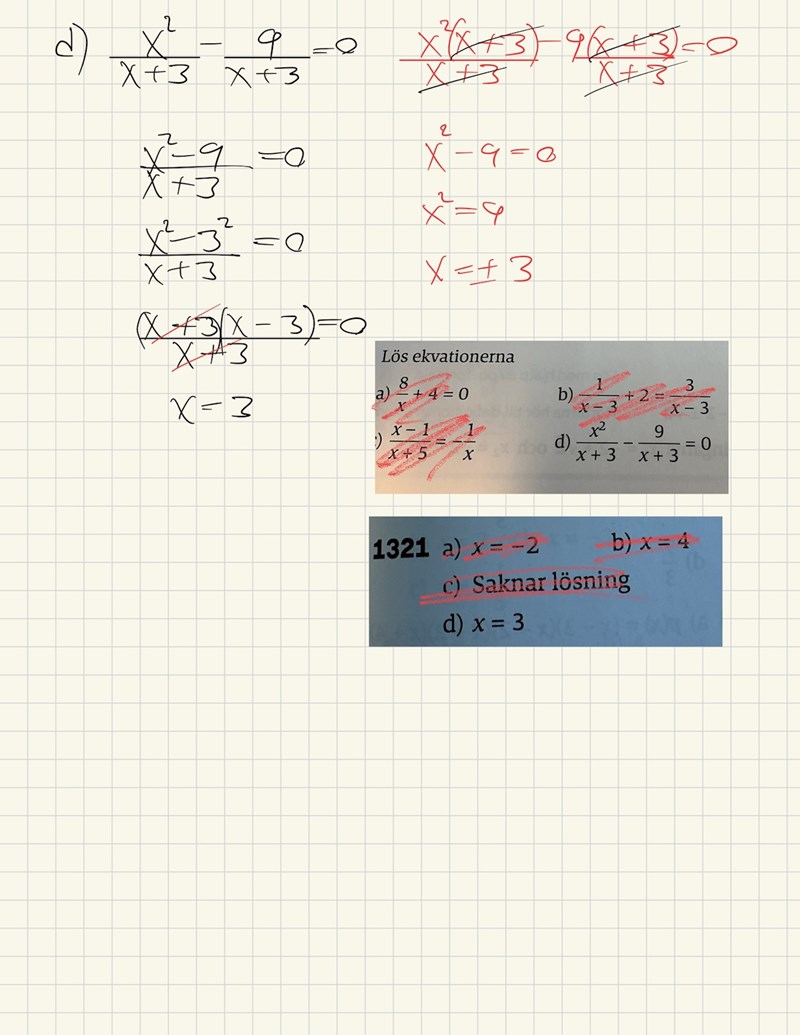 d) x²/(x+3) - 9/(x+3) = 0
x²(x+3)/(x+3) - 9(x+3)/(x+3) = 0
(x²-9)/(x+3) = 0
x² - 9 = 0
(x²-3²)/(x+3) = 0
x² = 9
(x+3)(x-3)/(x+3) = 0
x = ± 3
x = 3
Lös ekvationerna
a) 8/x + 4 = 0
b) 1/(x-3) + 2 = 3/(x-3)
:) (x-1)/(x+5) = -1/x
d) x²/(x+3) - 9/(x+3) = 0
1321 a) x = -2 b) x = 4
c) Saknar lösning
d) x = 3